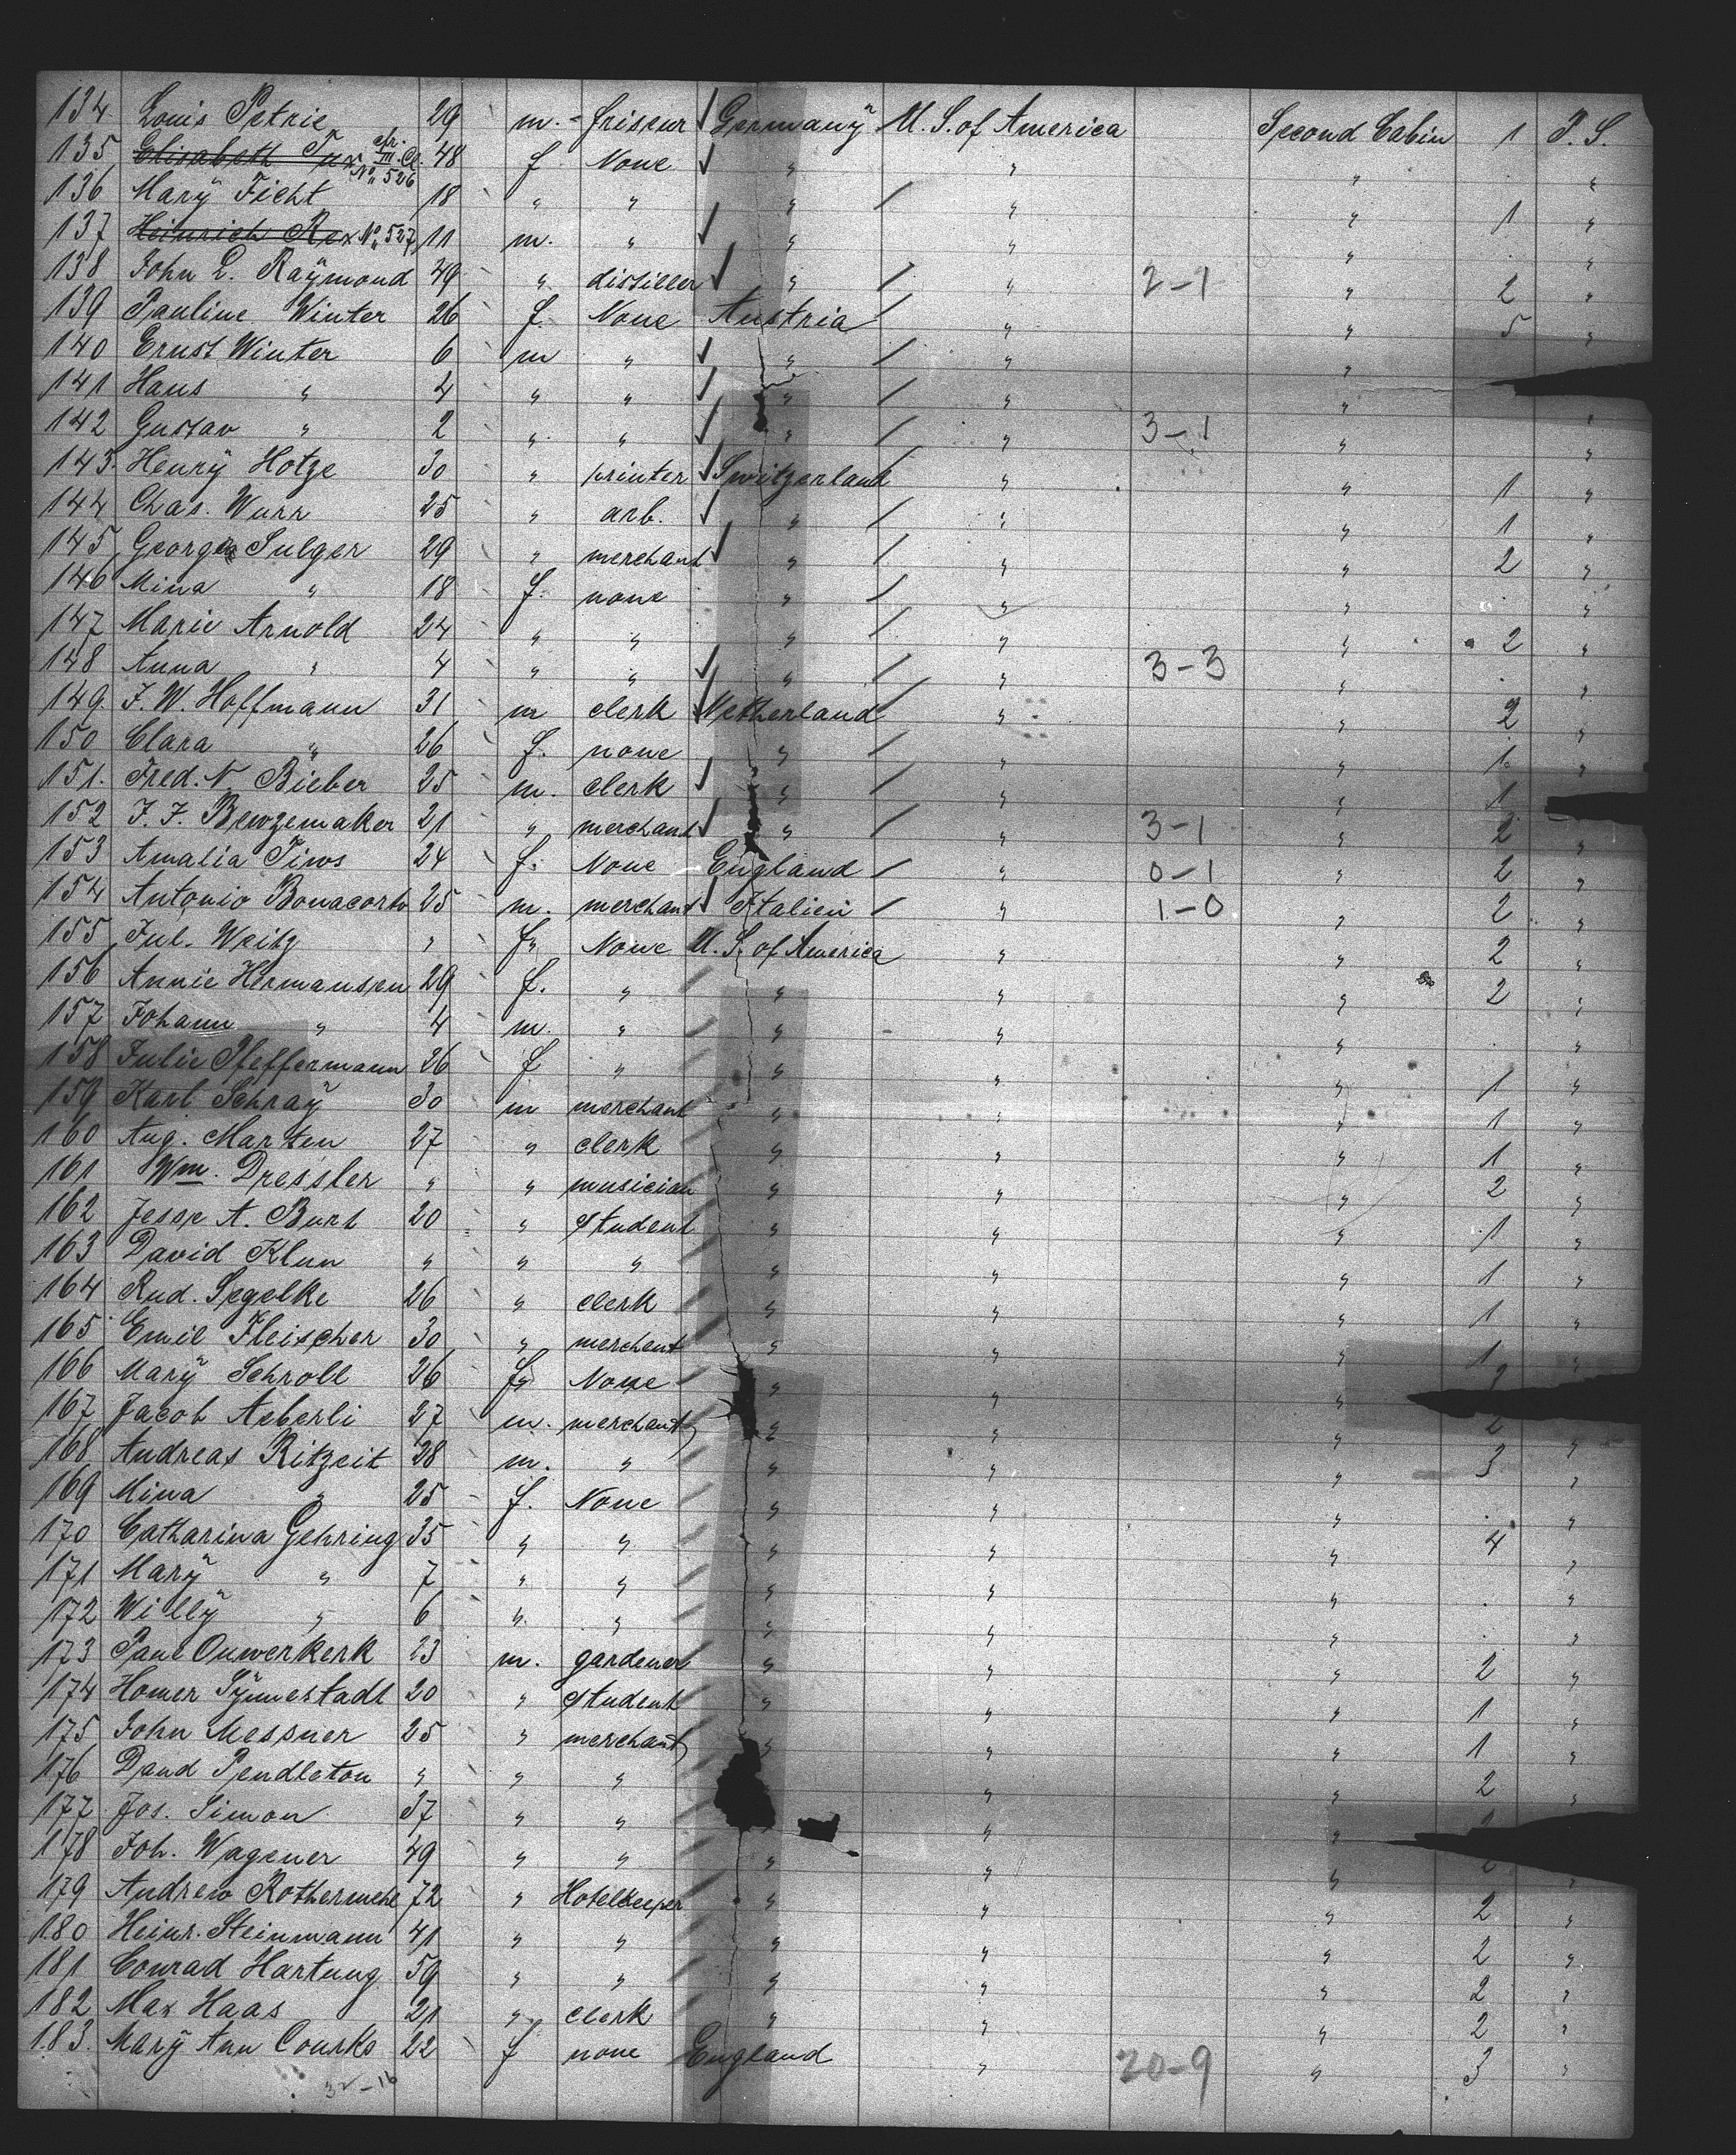 134 Louis Petrie 29 m. friseur Germany U. S. of America Second Cabin 1 P. S.
135 Elisabeth Tux cfr. III. Cl. No 526 48 f None " " " "
136 Mary Ficht 18 " " " " " 1 "
137 Heinrich Rex No 527 11 m. " " " " "
138 John L. Raymond 49 " distiller " " 2-1 " 2 "
139 Pauline Winter 26 f. None Austria " " 5 "
140 Ernst Winter 6 m " " " " "
141 Hans " 4 " " " " "
142 Gustav " 2 " " " " 3-1 " "
143. Henry Hotze 30 " printer Switzerland " " 1 "
144 Chas. Wurr 25 " arb. " " " 1 "
145 George Sulger 29 " merchant " " " 2 "
146 Mina " 18 f. none " " " "
147 Marie Arnold 24 " " " " " 2 "
148 Anna " 4 " " " " 3-3 " "
149. F. W. Hoffmann 31 m clerk Netherland " " 2 "
150 Clara " 26 f. none " " " 1 "
151. Fred. N. Bieber 25 m. clerk " " " 1
152 J. J. Bewzemaker 21 " merchant " " 3-1 " 2 "
153 Amalia Tiws 24 f. None England " 0-1 " 2 "
154 Antonio Bonacorto 25 m. merchant Italien " 1-0 " 2 "
155 Jul. Weitz " f None U. S. of America " " 2 "
156 Annie Hermansen 29 f. " " " " 2 "
157 Johann " 4 m. " " " " "
158 Julie Pfeffermann 26 f " " " " 1 "
159 Karl Schray 30 m merchant " " " 1 "
160 Aug. Marten 27 " clerk " " " 1 "
161 Wm. Dressler " " musician " " " 2 "
162 Jesse A. Burt 20 " student " " " 1 "
163 David Klun " " " " " " 1 "
164 Rud. Segelke 26 " clerk " " " 1 "
165 Emil Fleischer 30 " merchant " " " 1 "
166 Mary Schroll 26 f None " " "
167 Jacob Aeberli 27 m. merchant " " " 2 "
168 Andreas Ritzeit 28 m. " " " " 3 "
169 Mina " 25 f. None " " " "
170 Catharina Gehring 35 " " " " " 4 "
171 Mary " 7 " " " " " "
172 Willy " 6 " " " " " "
173 Paul Ouwerkerk 23 m. gardener " " " 2 "
174 Homer Synnestadt 20 " student " " " 1 "
175 John Messner 25 " merchant " " " 1 "
176 David Pendleton " " " " " 2 "
177 Jos. Simon 37 " " " "
178 Joh. Wagener 49 " " " " " "
179 Andrew Rothermehl 72 " Hotelkeeper " " " 2 "
180 Heinr. Steinmann 41 " " " " " 2 "
181 Conrad Hartung 59 " " " " " 2 "
182 Max Haas 21 " clerk " " " 2 "
183. Mary Ann Courks 22 f none England " 20-9 " 3 "
32-16